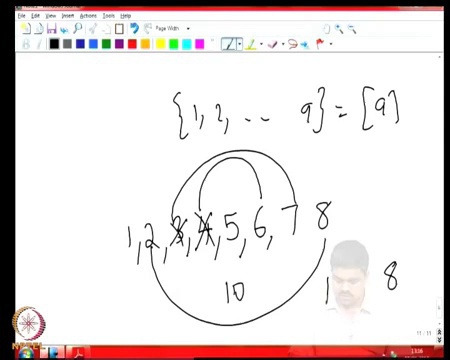 File Edit View Insert Actions Tools Help
Page Width
{1, 2, .. 9} = [9]
1, 2, 3, 4, 5, 6, 7 8
10 1 8